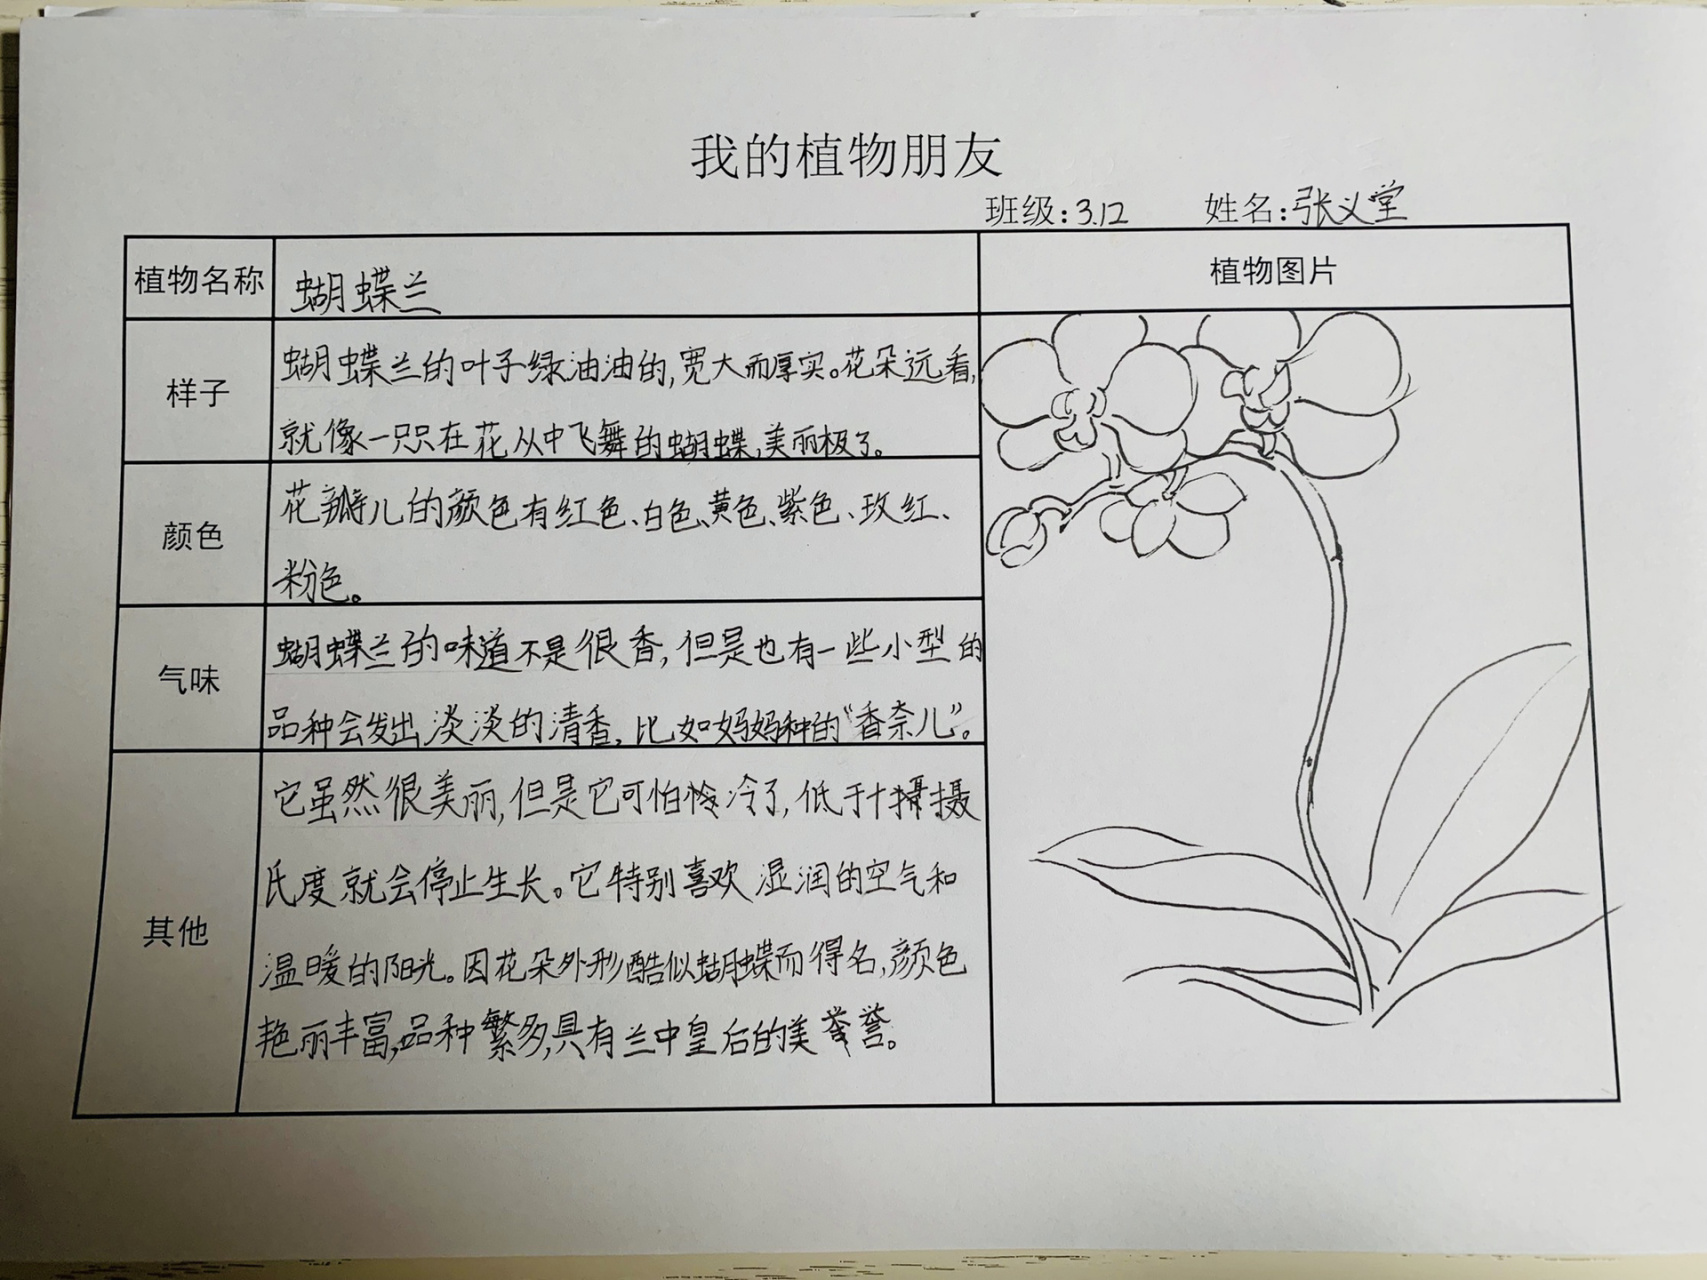 我的植物朋友
班级:3.12 姓名:张义堂
植物名称 蝴蝶兰 植物图片
样子
蝴蝶兰的叶子绿油油的,宽大而厚实。花朵远看,
就像一只只在花从中飞舞的蝴蝶,美丽极了。
颜色
花瓣儿的颜色有红色、白色、黄色、紫色、玫红、
粉色。
气味
蝴蝶兰的味道不是很香,但是也有一些小型的
品种会发出淡淡的清香,比如妈妈种的“香奈儿”。
其他
它虽然很美丽,但是它可怕冷了,低于十摄
氏度就会停止生长。它特别喜欢湿润的空气和
温暖的阳光。因花朵外形酷似蝴蝶而得名,颜色
艳丽丰富,品种繁多,具有兰中皇后的美誉。